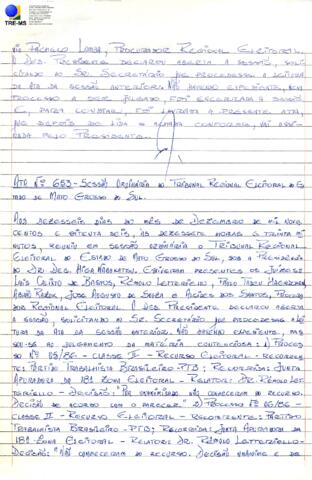 TRE-MS
de Pacheco Lomba, Procurador Regional Eleitoral.
O Des. Presidente declarou aberta a sessão, soli-
citando ao Sr. Secretário que procedesse a leitura
da ata da sessão anterior. Não havendo expediente, nem
processo a ser julgado, foi encerrada a sessão
E, para constar, foi lavrada a presente ata,
que depois de lida e achada conforme, vai assi-
nada pelo Presidente.
Ata Nº 653 - Sessão Ordinária do Tribunal Regional Eleitoral do Es-
tado de Mato Grosso do Sul.
Aos dezesseis dias do mês de Dezembro de mil nove-
centos e oitenta e seis, às dezessete horas e trinta mi-
nutos, reuniu em sessão ordinária o Tribunal Regional
Eleitoral do Estado de Mato Grosso do Sul, sob a Presidência
do Sr. Des. Higa Nabukatsu. Estiveram presentes os Juízes:
Luis Calixto de Bastos, Rêmolo Letteriello, Paulo Tadeu Haendchen,
José Augusto de Souza e Alcides dos Santos, Procura-
dor Regional Eleitoral. O Des. Presidente declarou aberta
a sessão, solicitando ao Sr. Secretário que procedesse a lei-
tura da ata da sessão anterior. Não houve expediente, pas-
sou-se ao julgamento da matéria contenciosa: 1) Proces-
so Nº 05/86 - Classe II - Recurso Eleitoral - Recorren-
te: Partido Trabalhista Brasileiro - PTB; Recorrida: Junta
Apuradora da 18ª Zona Eleitoral - Relator: Dr. Rêmolo Let-
teriello - Decisão: "Por unanimidade não conheceram do recurso.
Decisão de acordo com o parecer." 2) Processo Nº 06/86 -
Classe II - Recurso Eleitoral - Recorrente: Partido
Trabalhista Brasileiro - PTB; Recorrida: Junta Apuradora da
18ª Zona Eleitoral - Relator: Dr. Rêmolo Letteriello -
Decisão: "Não conheceram do recurso. Decisão unânime e de